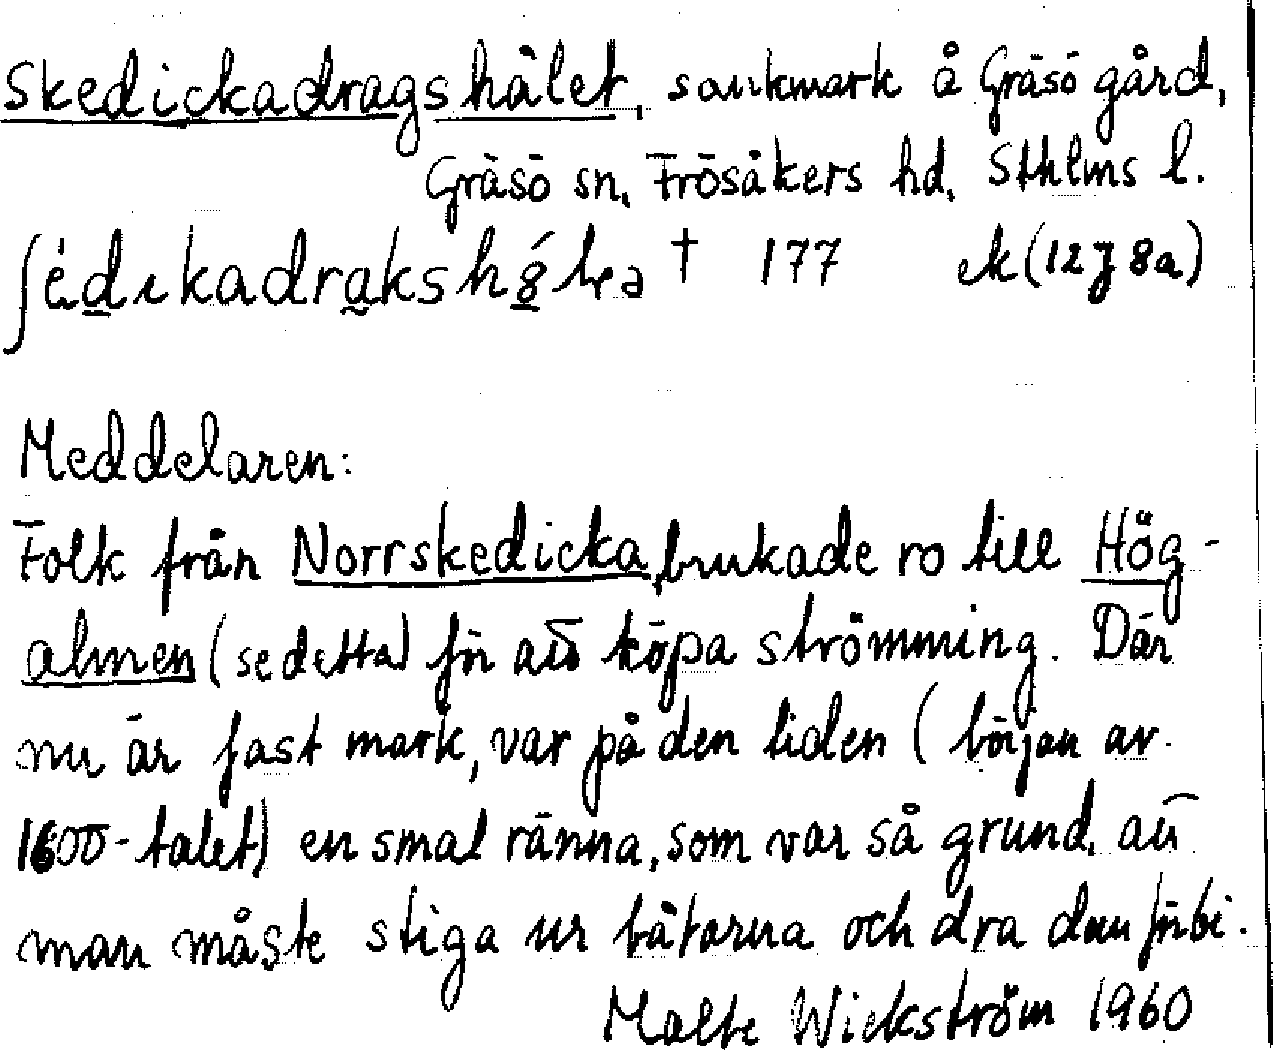 Skedickadragshålet, sankmark å Gräsö gård,
Gräsö sn, Frösåkers hd, Sthlms l.
† 177 ek (12J 8a)
Meddelaren:
Folk från Norrskedicka, brukade ro till Hög-
almen (se detta) för att köpa strömming. Där
nu är fast mark, var på den tiden (början av
1600-talet) en smal ränna, som var så grund, att
man måste stiga ur båtarna och dra dem förbi.
Malte Wickström 1960